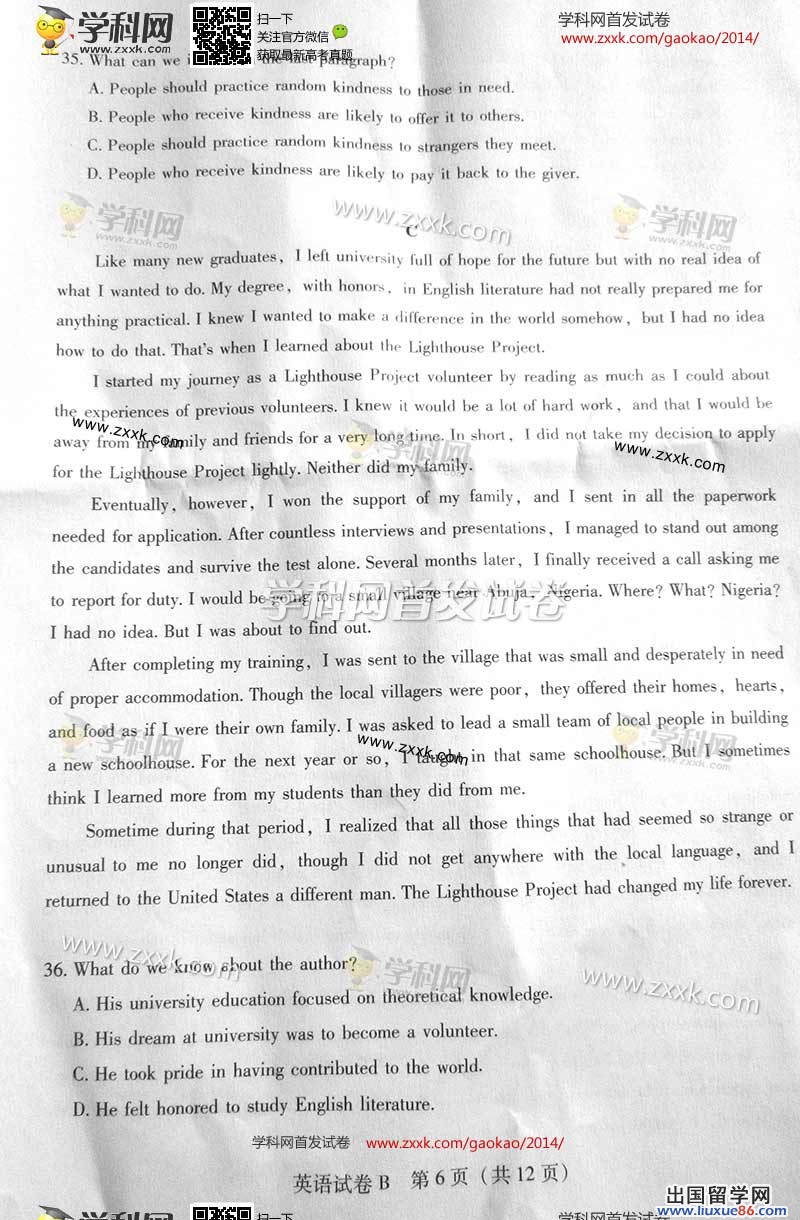 学科网 扫一下 学科网首发试卷
www.zxxk.com 关注官方微信 www.zxxk.com/gaokao/2014/
获取最新高考真题
35. What can we the last paragraph?
A. People should practice random kindness to those in need.
B. People who receive kindness are likely to offer it to others.
C. People should practice random kindness to strangers they meet.
D. People who receive kindness are likely to pay it back to the giver.
学科网 www.zxxk.com 学科网
www.zxxk.com
C
Like many new graduates, I left university full of hope for the future but with no real idea of
what I wanted to do. My degree, with honors, in English literature had not really prepared me for
anything practical. I knew I wanted to make a difference in the world somehow, but I had no idea
how to do that. That's when I learned about the Lighthouse Project.
I started my journey as a Lighthouse Project volunteer by reading as much as I could about
the experiences of previous volunteers. I knew it would be a lot of hard work, and that I would be
away from my family and friends for a very long time. In short, I did not take my decision to apply
for the Lighthouse Project lightly. Neither did my family.
www.zxxk.com 学科网 www.zxxk.com
Eventually, however, I won the support of my family, and I sent in all the paperwork
needed for application. After countless interviews and presentations, I managed to stand out among
the candidates and survive the test alone. Several months later, I finally received a call asking me
to report for duty. I would be going to a small village near Abuja, Nigeria. Where? What? Nigeria?
学科网首发试卷
I had no idea. But I was about to find out.
After completing my training, I was sent to the village that was small and desperately in need
of proper accommodation. Though the local villagers were poor, they offered their homes, hearts,
and food as if I were their own family. I was asked to lead a small team of local people in building
学科网 www.zxxk.com 学科网
a new schoolhouse. For the next year or so, I taught in that same schoolhouse. But I sometimes
think I learned more from my students than they did from me.
Sometime during that period, I realized that all those things that had seemed so strange or
unusual to me no longer did, though I did not get anywhere with the local language, and I
returned to the United States a different man. The Lighthouse Project had changed my life forever.
www.zxxk.com 学科网 www.zxxk.com
36. What do we know about the author?
A. His university education focused on theoretical knowledge.
B. His dream at university was to become a volunteer.
C. He took pride in having contributed to the world.
D. He felt honored to study English literature.
学科网首发试卷 www.zxxk.com/gaokao/2014/
英语试卷B 第6页(共12页)
出国留学网
www.liuxue86.com
扫一下 学科网首发试卷